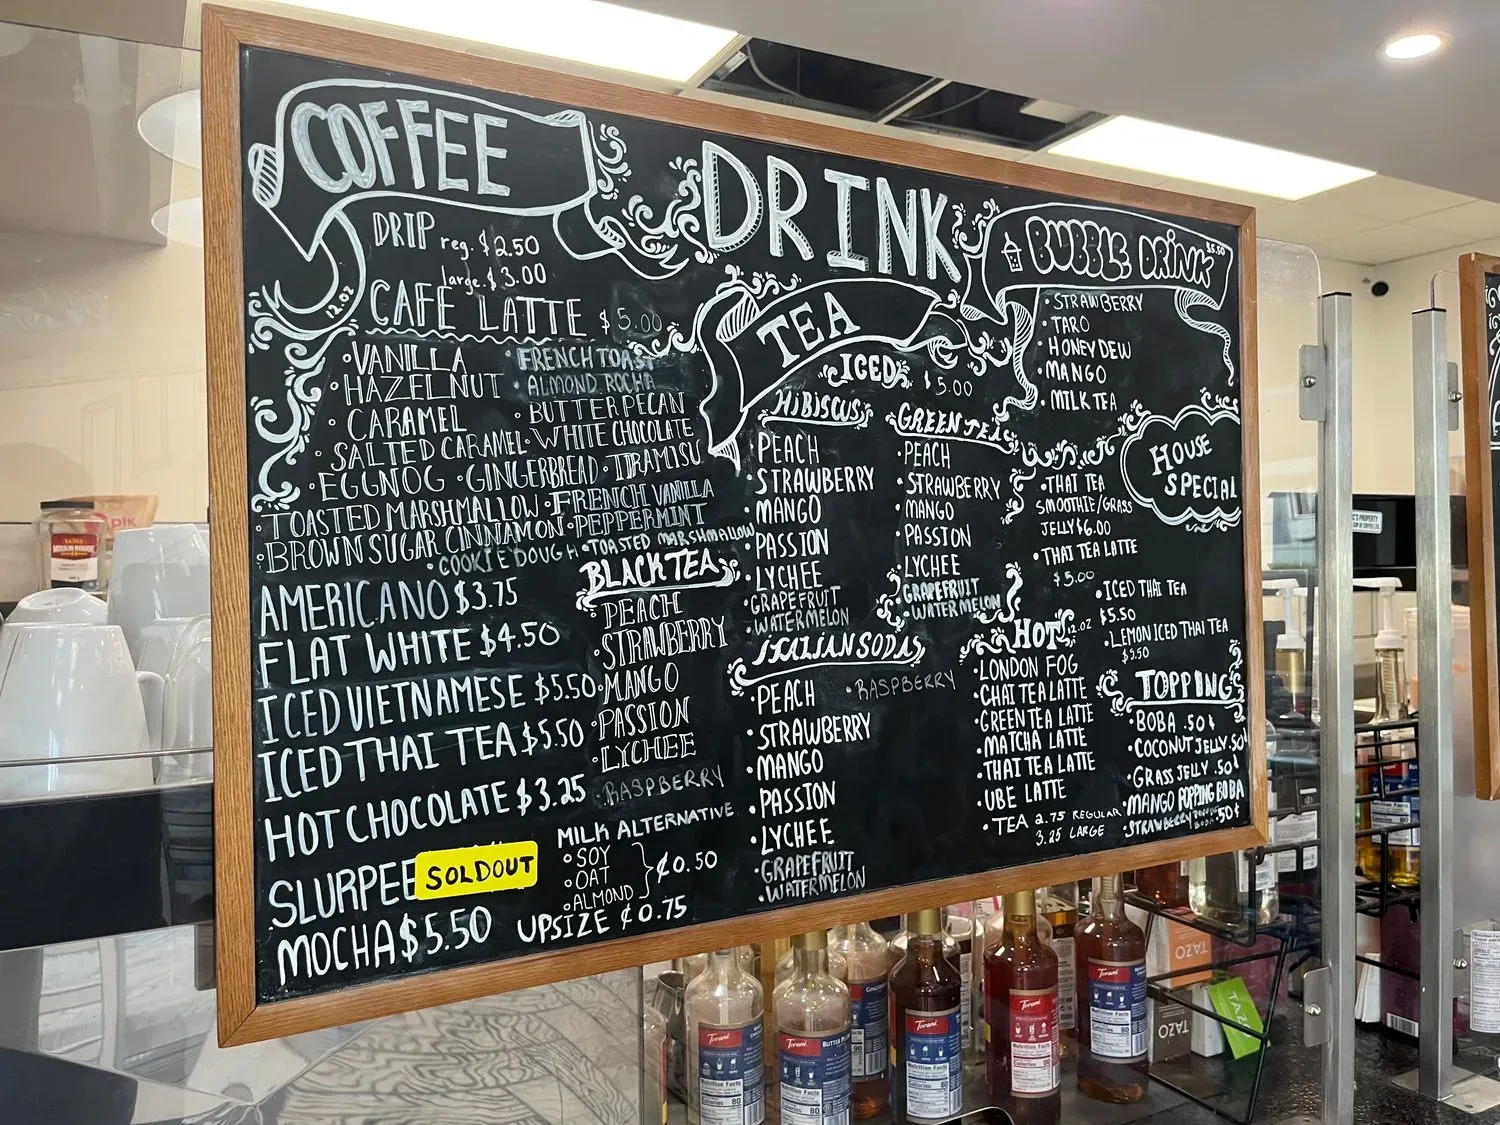 COFFEE
DRIP reg. $2.50
large $3.00
12.oz
CAFE LATTE $5.00
•VANILLA •FRENCH TOAST
•HAZELNUT •ALMOND ROCHA
•CARAMEL •BUTTER PECAN
•SALTED CARAMEL •WHITE CHOCOLATE
•EGGNOG •GINGERBREAD •TIRAMISU
•TOASTED MARSHMALLOW •FRENCH VANILLA
•BROWN SUGAR CINNAMON •PEPPERMINT
•COOKIE DOUGH •TOASTED MARSHMALLOW
AMERICANO $3.75
FLAT WHITE $4.50
ICED VIETNAMESE $5.50
ICED THAI TEA $5.50
HOT CHOCOLATE $3.25
SLURPEE SOLDOUT
MOCHA $5.50
BLACK TEA
•PEACH
•STRAWBERRY
•MANGO
•PASSION
•LYCHEE
•RASPBERRY
MILK ALTERNATIVE
•SOY
•OAT
•ALMOND
¢0.50
UPSIZE ¢0.75
DRINK
TEA
ICED $5.00
HIBISCUS
•PEACH
•STRAWBERRY
•MANGO
•PASSION
•LYCHEE
•GRAPEFRUIT
•WATERMELON
GREEN TEA
•PEACH
•STRAWBERRY
•MANGO
•PASSION
•LYCHEE
•GRAPEFRUIT
•WATERMELON
ITALIAN SODAS
•PEACH •RASPBERRY
•STRAWBERRY
•MANGO
•PASSION
•LYCHEE
•GRAPEFRUIT
•WATERMELON
BUBBLE DRINK $5.50
•STRAWBERRY
•TARO
•HONEYDEW
•MANGO
•MILK TEA
HOUSE
SPECIAL
•THAI TEA
SMOOTHIE/GRASS
JELLY $6.00
•THAI TEA LATTE
$5.00
•ICED THAI TEA
$5.50
•LEMON ICED THAI TEA
$5.50
HOT 12.OZ
•LONDON FOG
•CHAI TEA LATTE
•GREEN TEA LATTE
•MATCHA LATTE
•THAI TEA LATTE
•UBE LATTE
•TEA 2.75 REGULAR
3.25 LARGE
TOPPING
•BOBA .50¢
•COCONUT JELLY .50¢
•GRASS JELLY .50¢
•MANGO POPPING BOBA
•STRAWBERRY POPPING BOBA .50¢
Torani
Nutrition Facts
Calories 80
Torani
Nutrition Facts
Calories 80
Torani
Nutrition Facts
Calories 80
Torani
Nutrition Facts
Calories 80
Torani
Nutrition Facts
80
TAZO
TAZO
TAZO